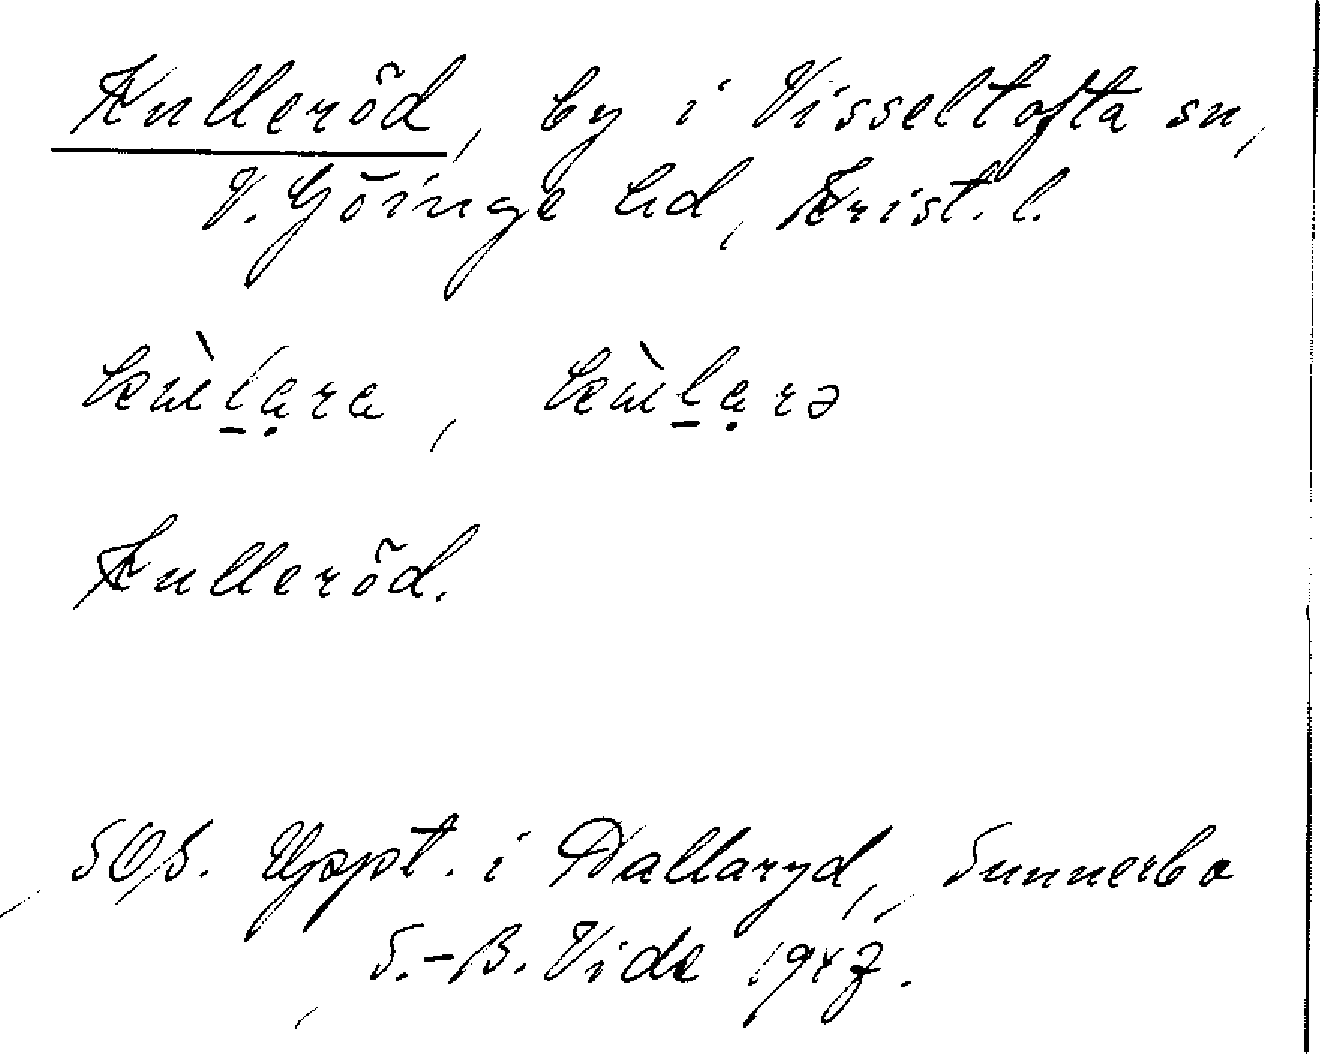 Kulleröd, by i Visseltofta sn,
V. Göinge hd, Krist. l.
kùl̲ạra, kùl̲ạrə
Kulleröd.
SOB. Uppt. i Hallaryd, Sunnerbo
S.-B. Vide 1947.